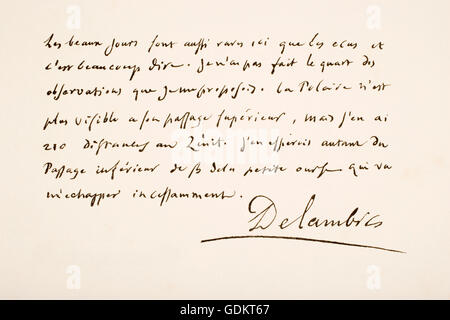 Les beaux jours sont aussi rares ici que les ecus et
c'est beaucoup dire. Je n'ai pas fait le quart des
observations que je me proposois. La Polaire n'est
plus visible a son passage supérieur, mais j'en ai
210 distances au Zénit. j'en espérois autant du
Passage inférieur de β de la petite ourse qui va
m'echapper incessamment.
Delambre
alamy
Image ID: GDKT67
www.alamy.com